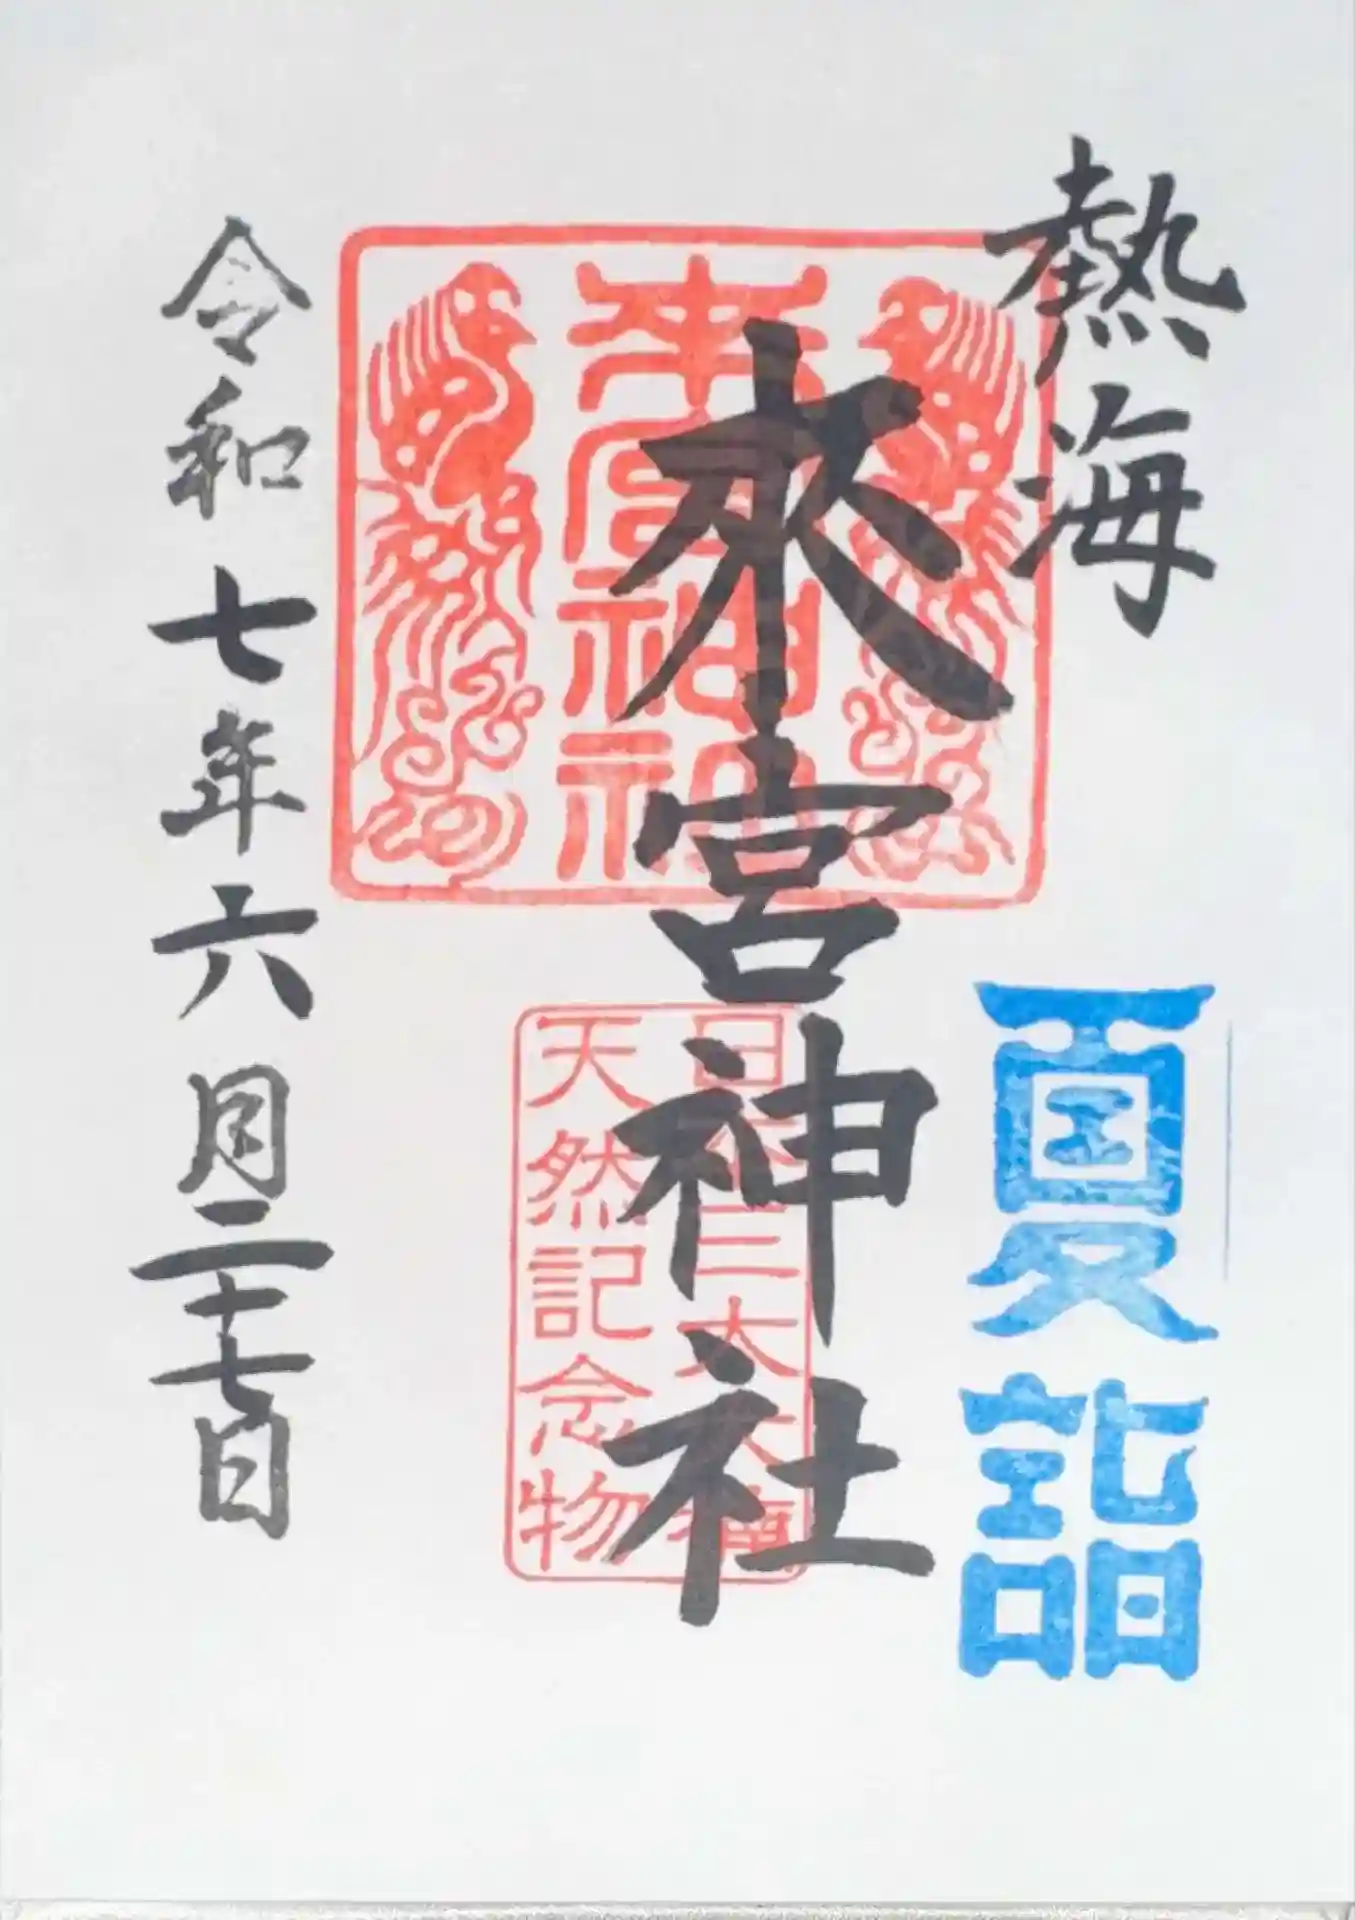 熱海
來宮神社
來宮神社
夏詣
日本三大大楠
天然記念物
令和七年六月二十七日